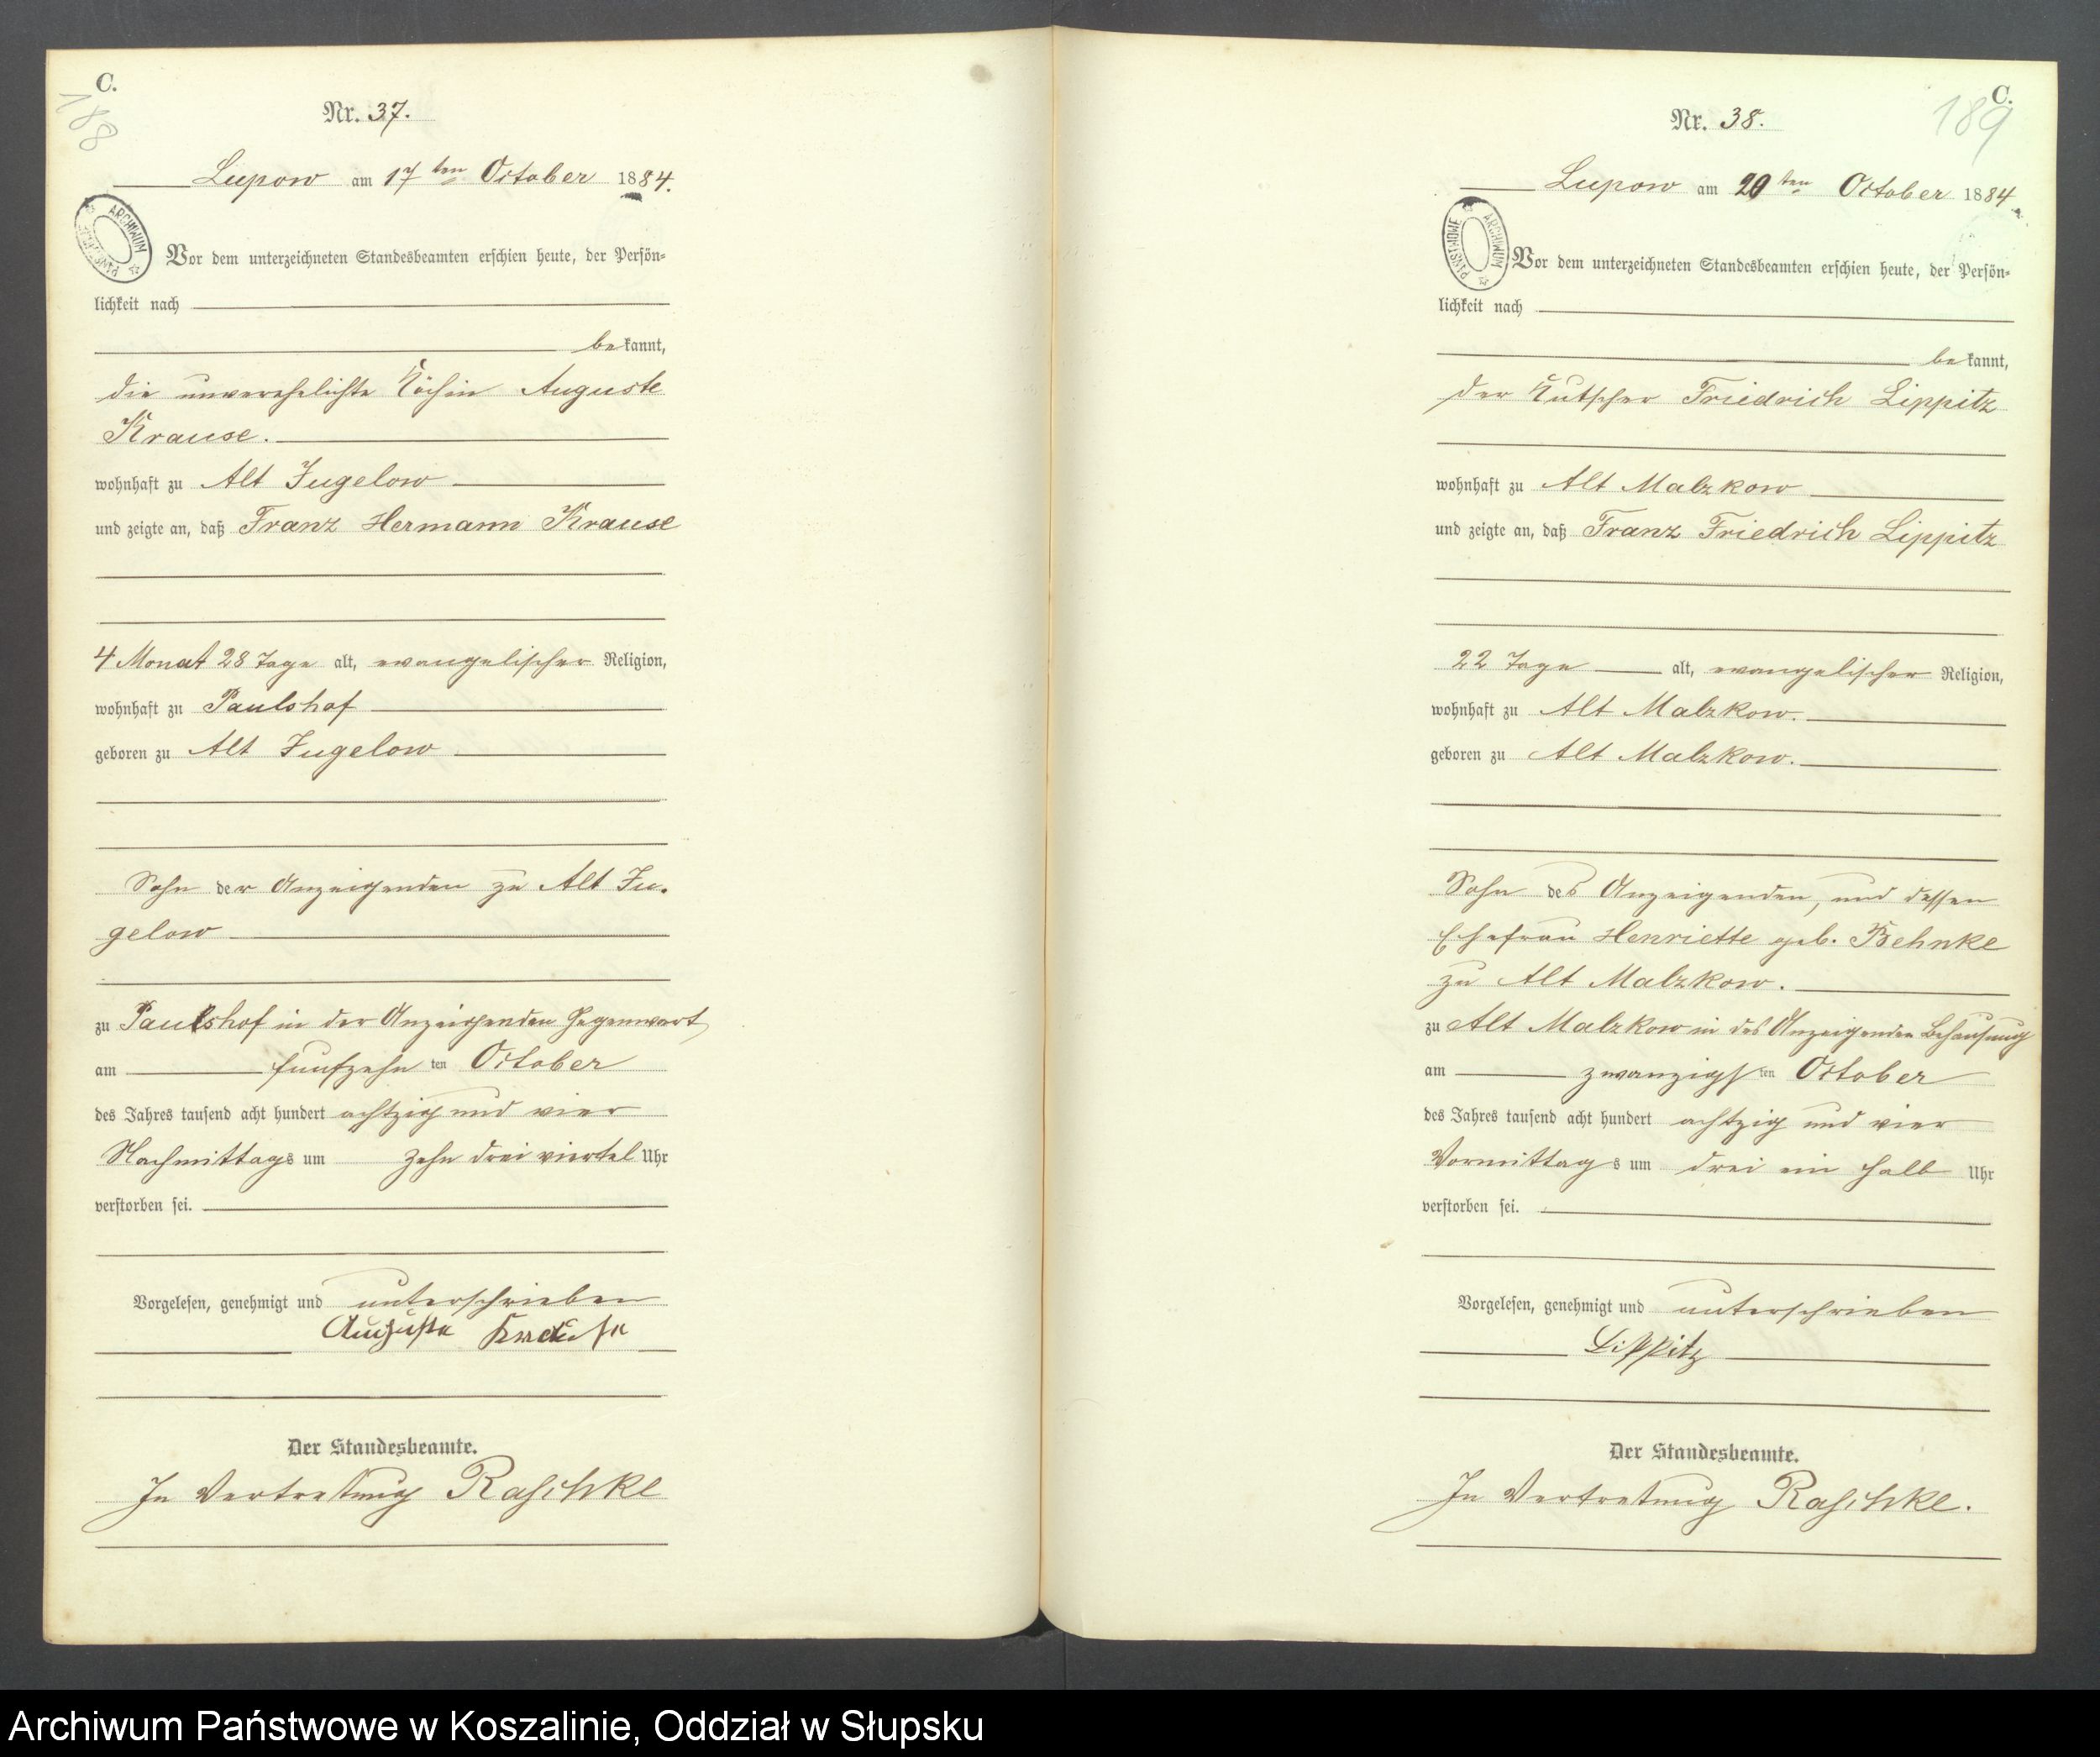 C.
188
Nr. 37.
Lupow am 17ten October 1884.
ARCHIWUM PAŃSTWOWE
Vor dem unterzeichneten Standesbeamten erschien heute, der Persön-
lichkeit nach
bekannt,
die unverehelichte Köchin Auguste
Krause.
wohnhaft zu Alt Jugelow
und zeigte an, daß Franz Hermann Krause
4 Monat 28 Tage alt, evangelischer Religion,
wohnhaft zu Paulshof
geboren zu Alt Jugelow
Sohn der Anzeigenden zu Alt Ju-
gelow
zu Paulshof in der Anzeigenden Gegenwart
am funfzehn ten October
des Jahres tausend acht hundert achtzig und vier
Nachmittags um zehn drei viertel Uhr
verstorben sei.
Vorgelesen, genehmigt und unterschrieben
Auguste Krause
Der Standesbeamte.
In Vertretung Raschke
C.
189
Nr. 38.
Lupow am 20ten October 1884.
ARCHIWUM PAŃSTWOWE
Vor dem unterzeichneten Standesbeamten erschien heute, der Persön-
lichkeit nach
bekannt,
der Kutscher Friedrich Lippitz
wohnhaft zu Alt Malzkow
und zeigte an, daß Franz Friedrich Lippitz
22 Tage alt, evangelischer Religion,
wohnhaft zu Alt Malzkow.
geboren zu Alt Malzkow.
Sohn des Anzeigenden, und dessen
Ehefrau Henriette geb. Behnke
zu Alt Malzkow.
zu Alt Malzkow in des Anzeigenden Behausung
am zwanzigs ten October
des Jahres tausend acht hundert achtzig und vier
Vormittags um drei ein halb Uhr
verstorben sei.
Vorgelesen, genehmigt und unterschrieben
Lippitz
Der Standesbeamte.
In Vertretung Raschke.
Archiwum Państwowe w Koszalinie, Oddział w Słupsku